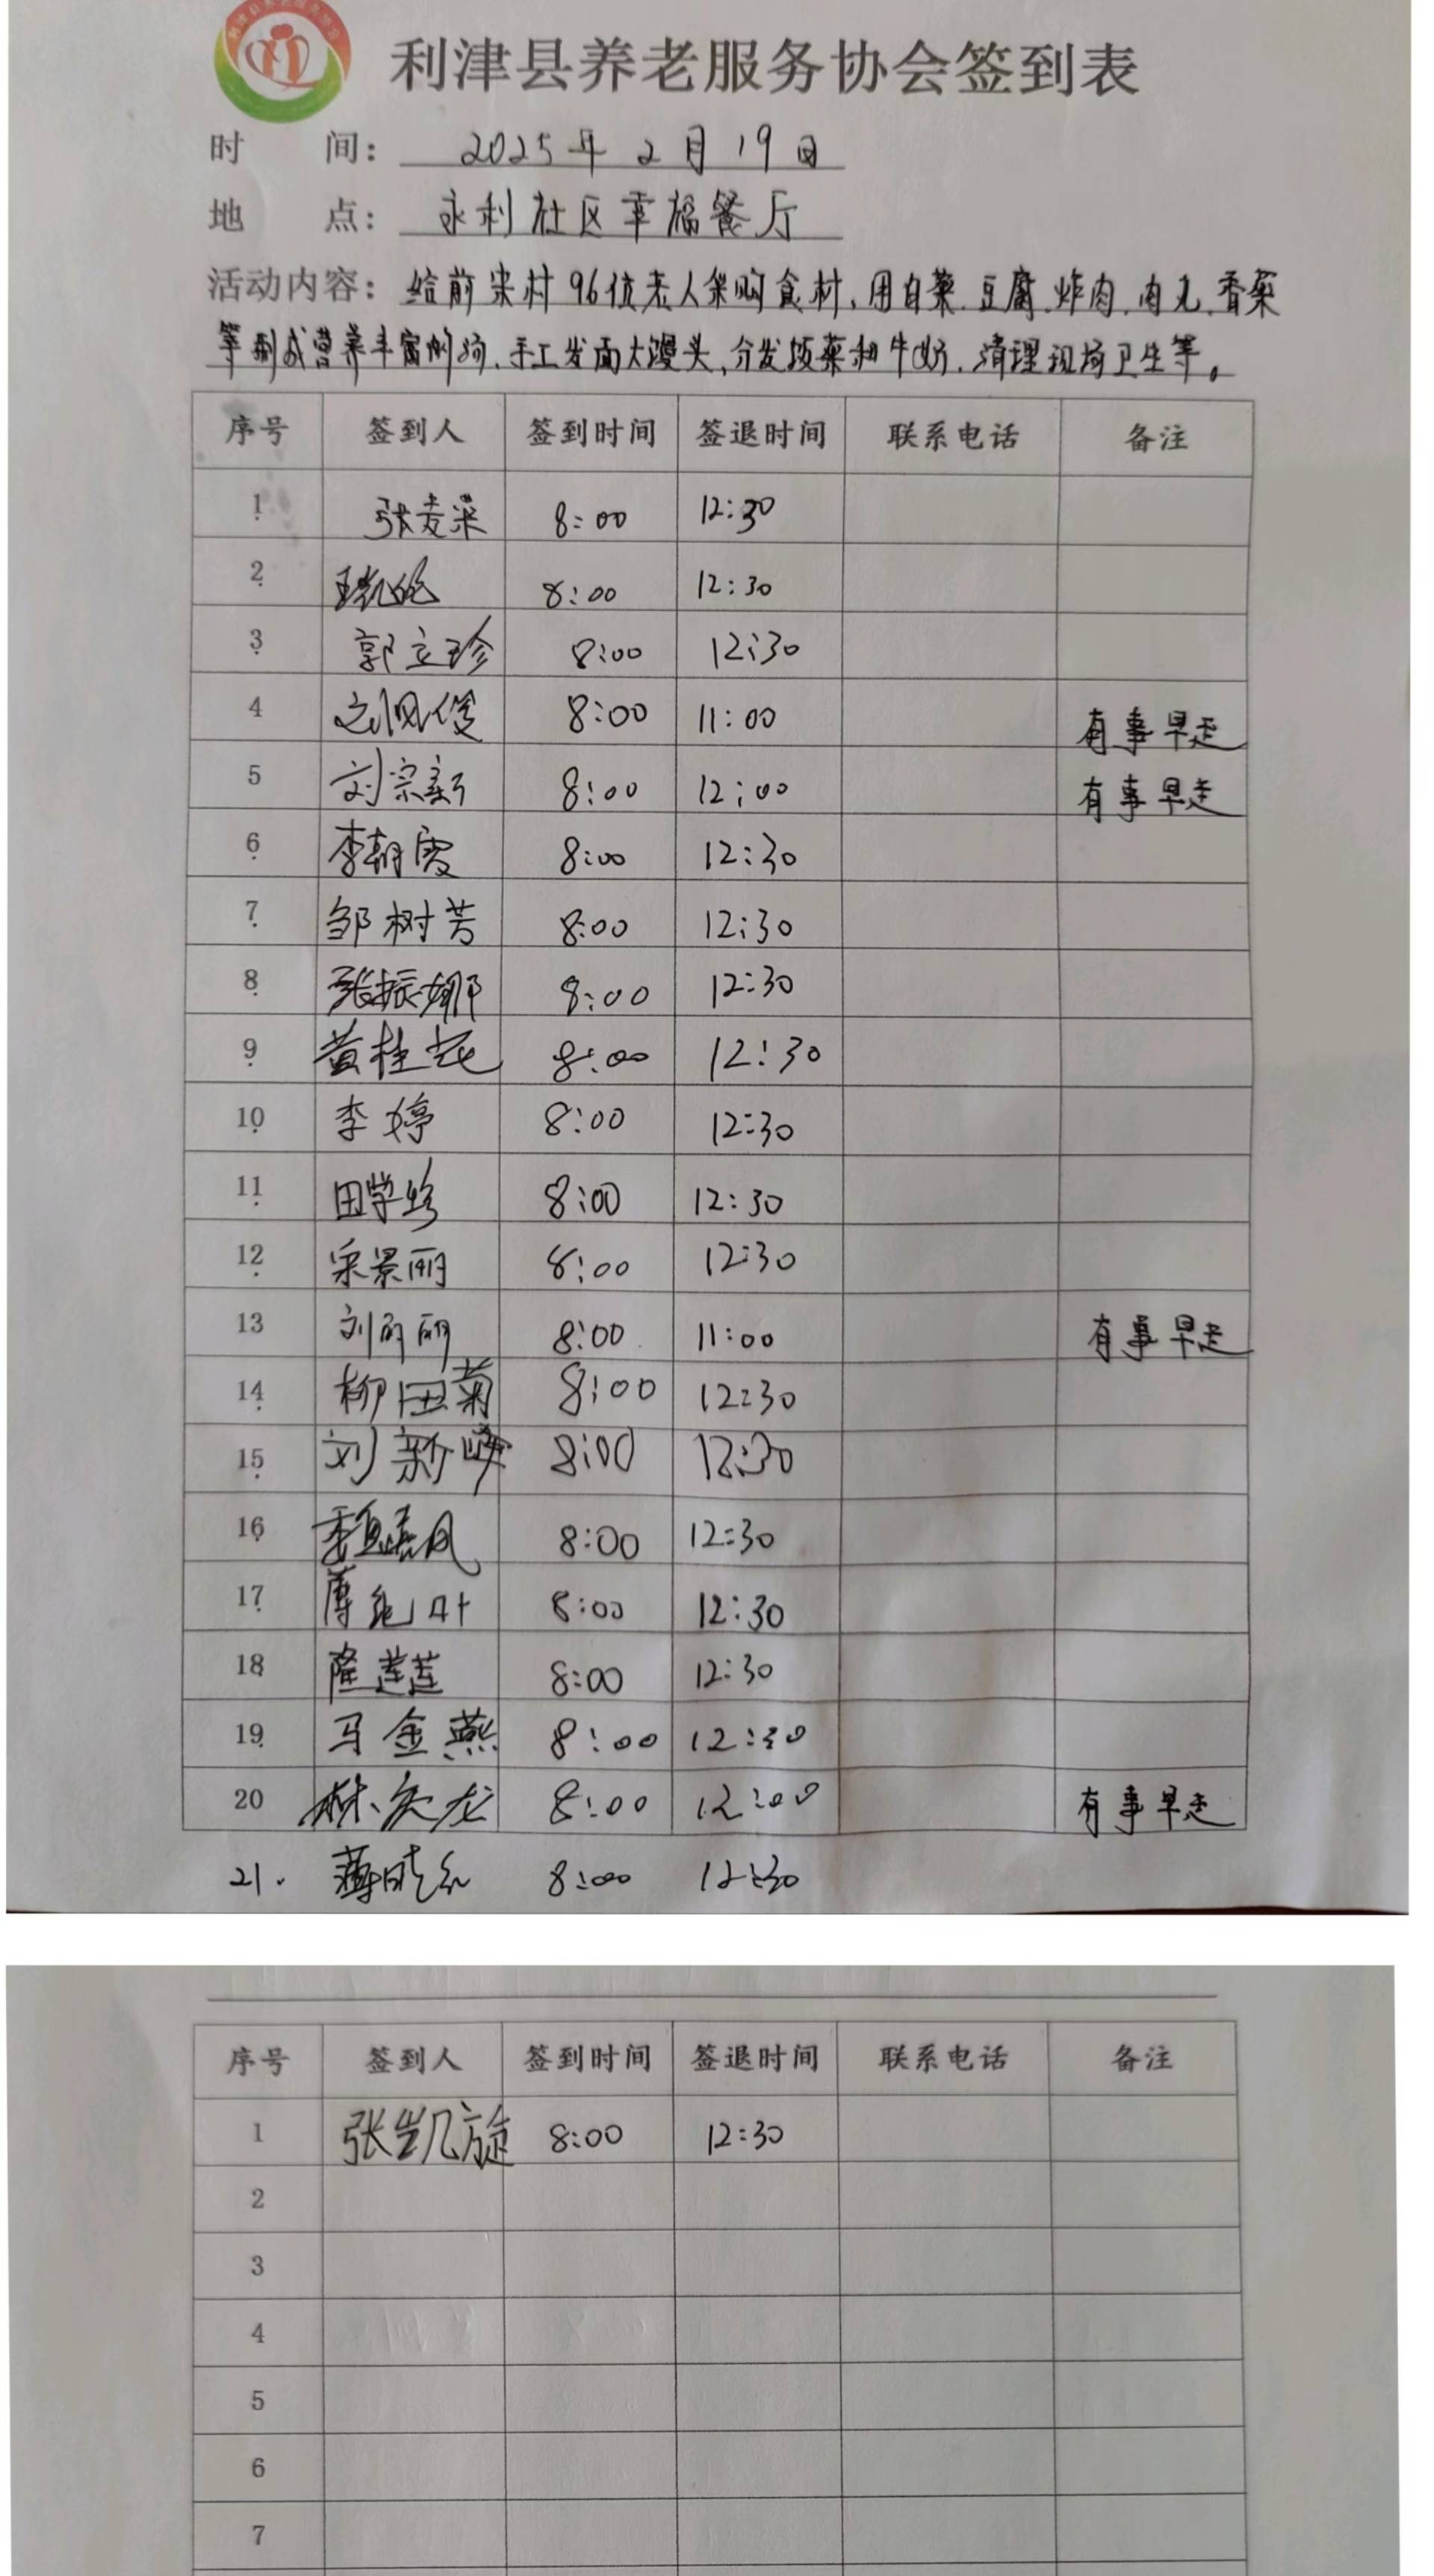 利津县养老服务协会签到表
时 间： 2025年2月19日
地 点： 永利社区幸福餐厅
活动内容： 给前宋村96位老人采购食材、用白菜、豆腐、炸肉、肉丸、香菜
等制成营养丰富的汤、手工发面大馒头、分发饭菜和牛奶、清理现场卫生等。
序号 签到人 签到时间 签退时间 联系电话 备注
1 张麦菜 8:00 12:30
2 8:00 12:30
3 郭立珍 8:00 12:30
4 8:00 11:00 有事早走
5 刘宗新 8:00 12:00 有事早走
6 李朝霞 8:00 12:30
7 邹树芳 8:00 12:30
8 张振娜 8:00 12:30
9 黄桂花 8:00 12:30
10 李婷 8:00 12:30
11 田学珍 8:00 12:30
12 景丽 8:00 12:30
13 刘丽 8:00 11:00 有事早走
14 柳田菊 8:00 12:30
15 刘新峰 8:00 12:30
16 8:00 12:30
17 8:00 12:30
18 隆莲莲 8:00 12:30
19 马金燕 8:00 12:30
20 林庆龙 8:00 12:00 有事早走
21. 薄晓红 8:00 12:30
序号 签到人 签到时间 签退时间 联系电话 备注
1 张凯旋 8:00 12:30
2
3
4
5
6
7